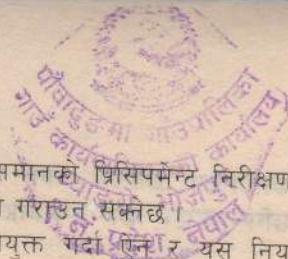 पौवादुङमा गाउँपालिका
गाउँ कार्यपालिकाको कार्यालय
भोजपुर
प्रदेश नेपाल
समानको प्रिसिपमेन्ट निरीक्षण
गराउन सक्नेछ ।
युक्त गर्दा ऐन र यस निय